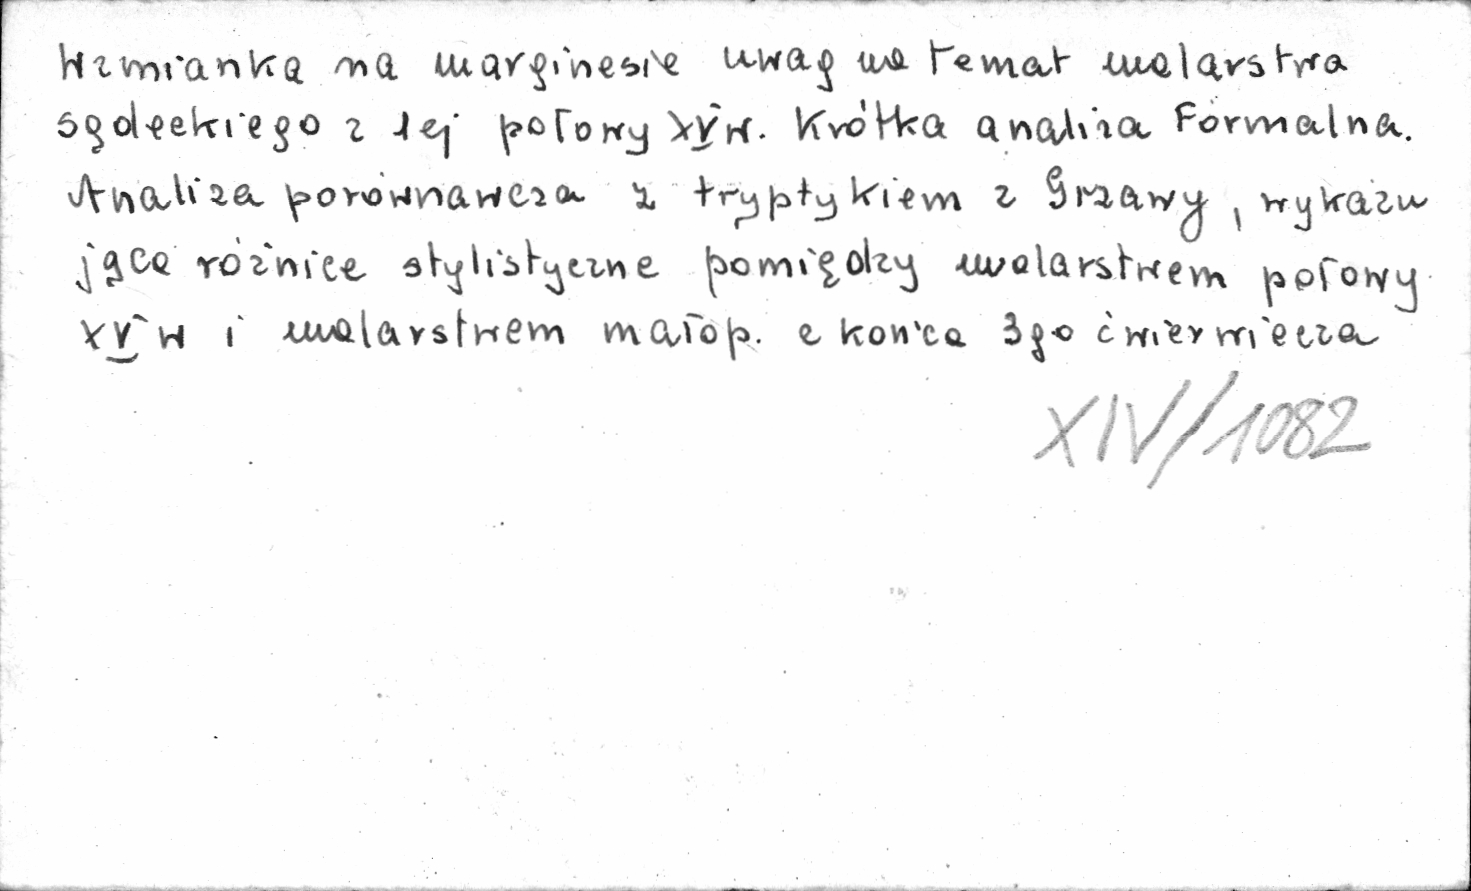 Wzmianka na marginesie uwag na temat malarstwa
sądeckiego z 1ej połowy XV w. Krótka analiza formalna.
Analiza porównawcza z tryptykiem z Grzawy, wykazu
jąca różnice stylistyczne pomiędzy malarstwem połowy
XV w i malarstwem małop. z końca 3go ćwierwiecza
XIV/1082